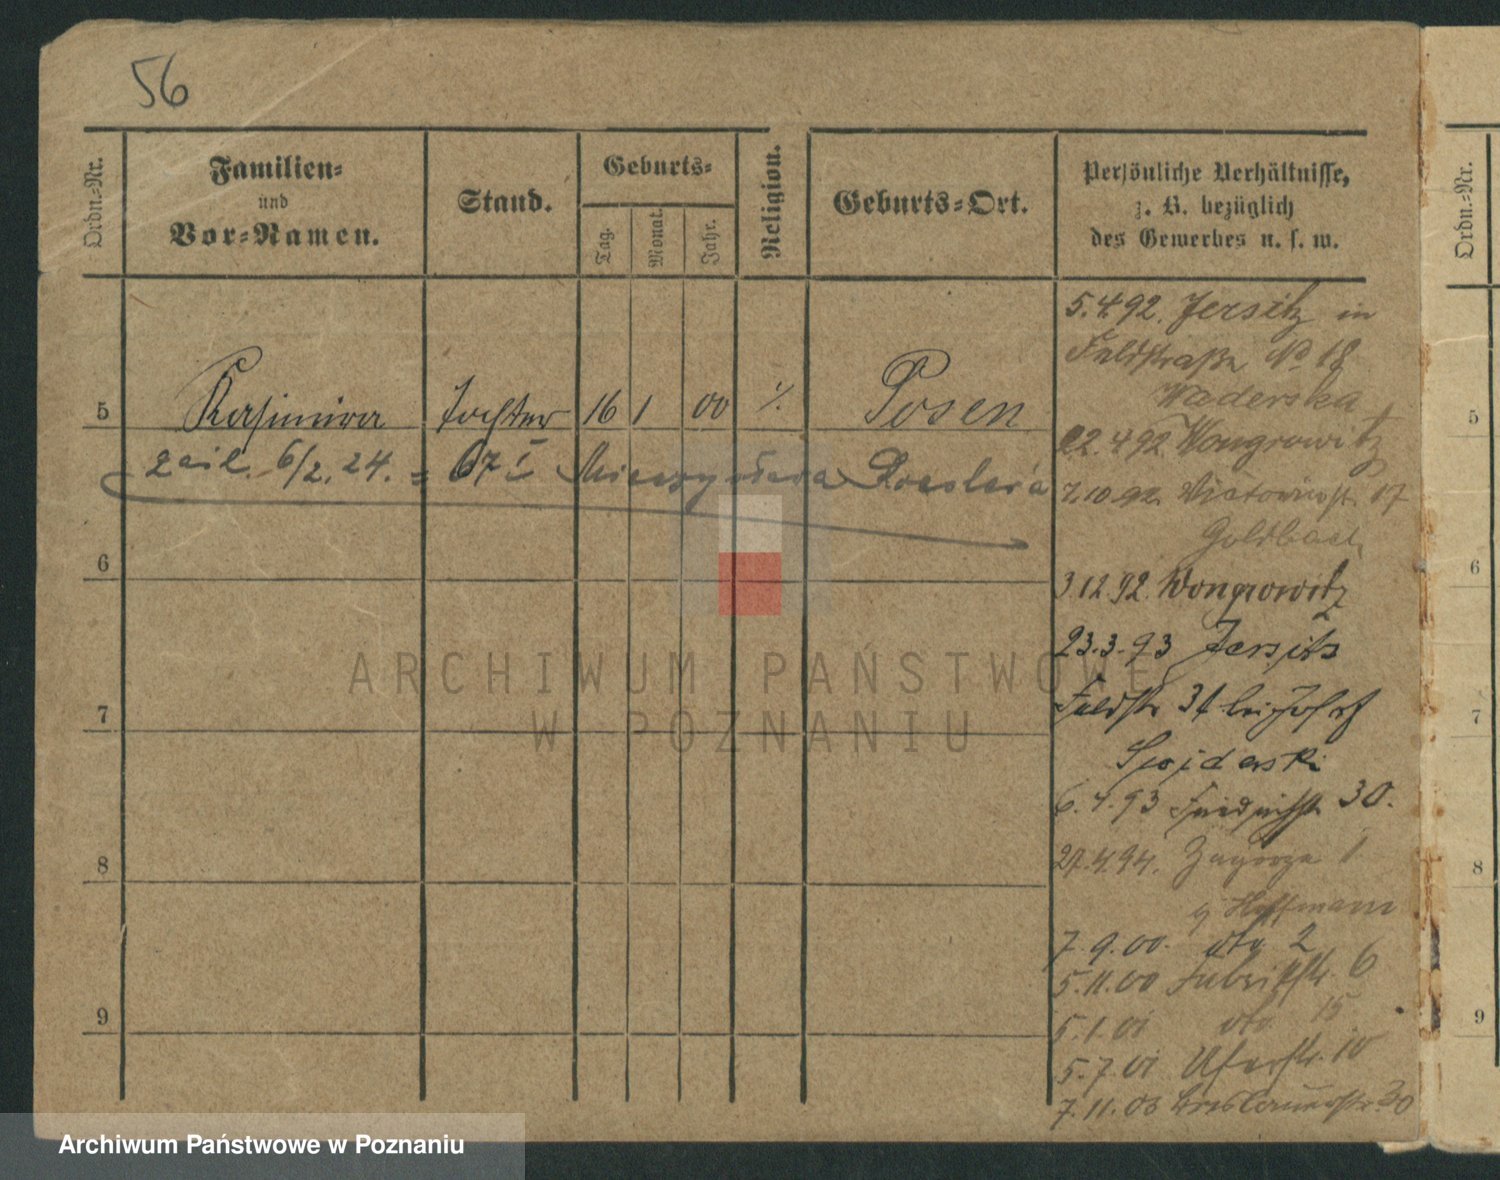 56
Ordn.-Nr.
Familien-
und
Vor-Namen.
Stand.
Geburts-
Tag.
Monat.
Jahr.
Religion.
Geburts-Ort.
Persönliche Verhältnisse,
z. B. bezüglich
des Gewerbes u. s. w.
5 Kasimira Tochter 16 1 00 ·/. Posen
6/2. 24. =
6
7
8
9
5.4.92. Jersitz in
Feldstraße No 18
22.4.92 Wongrowitz
7.10.92. 17
Goldbach
3.12.92. Wongrowitz
23.3.93 Jersitz
Feldstr 34 bei
6.4.93 Friedrichstr. 30.
27.4.94. Zagorze 1
b/ Hoffmann
7.9.00. dto 2
5.11.00 Fabrikstr. 6
5.1.01 dto 15
5.7.01 Uferstr. 10
7.11.03 Breslauerstr. 30
Ordn.-Nr.
5
6
7
8
9
ARCHIWUM PAŃSTWOWE
W POZNANIU
Archiwum Państwowe w Poznaniu